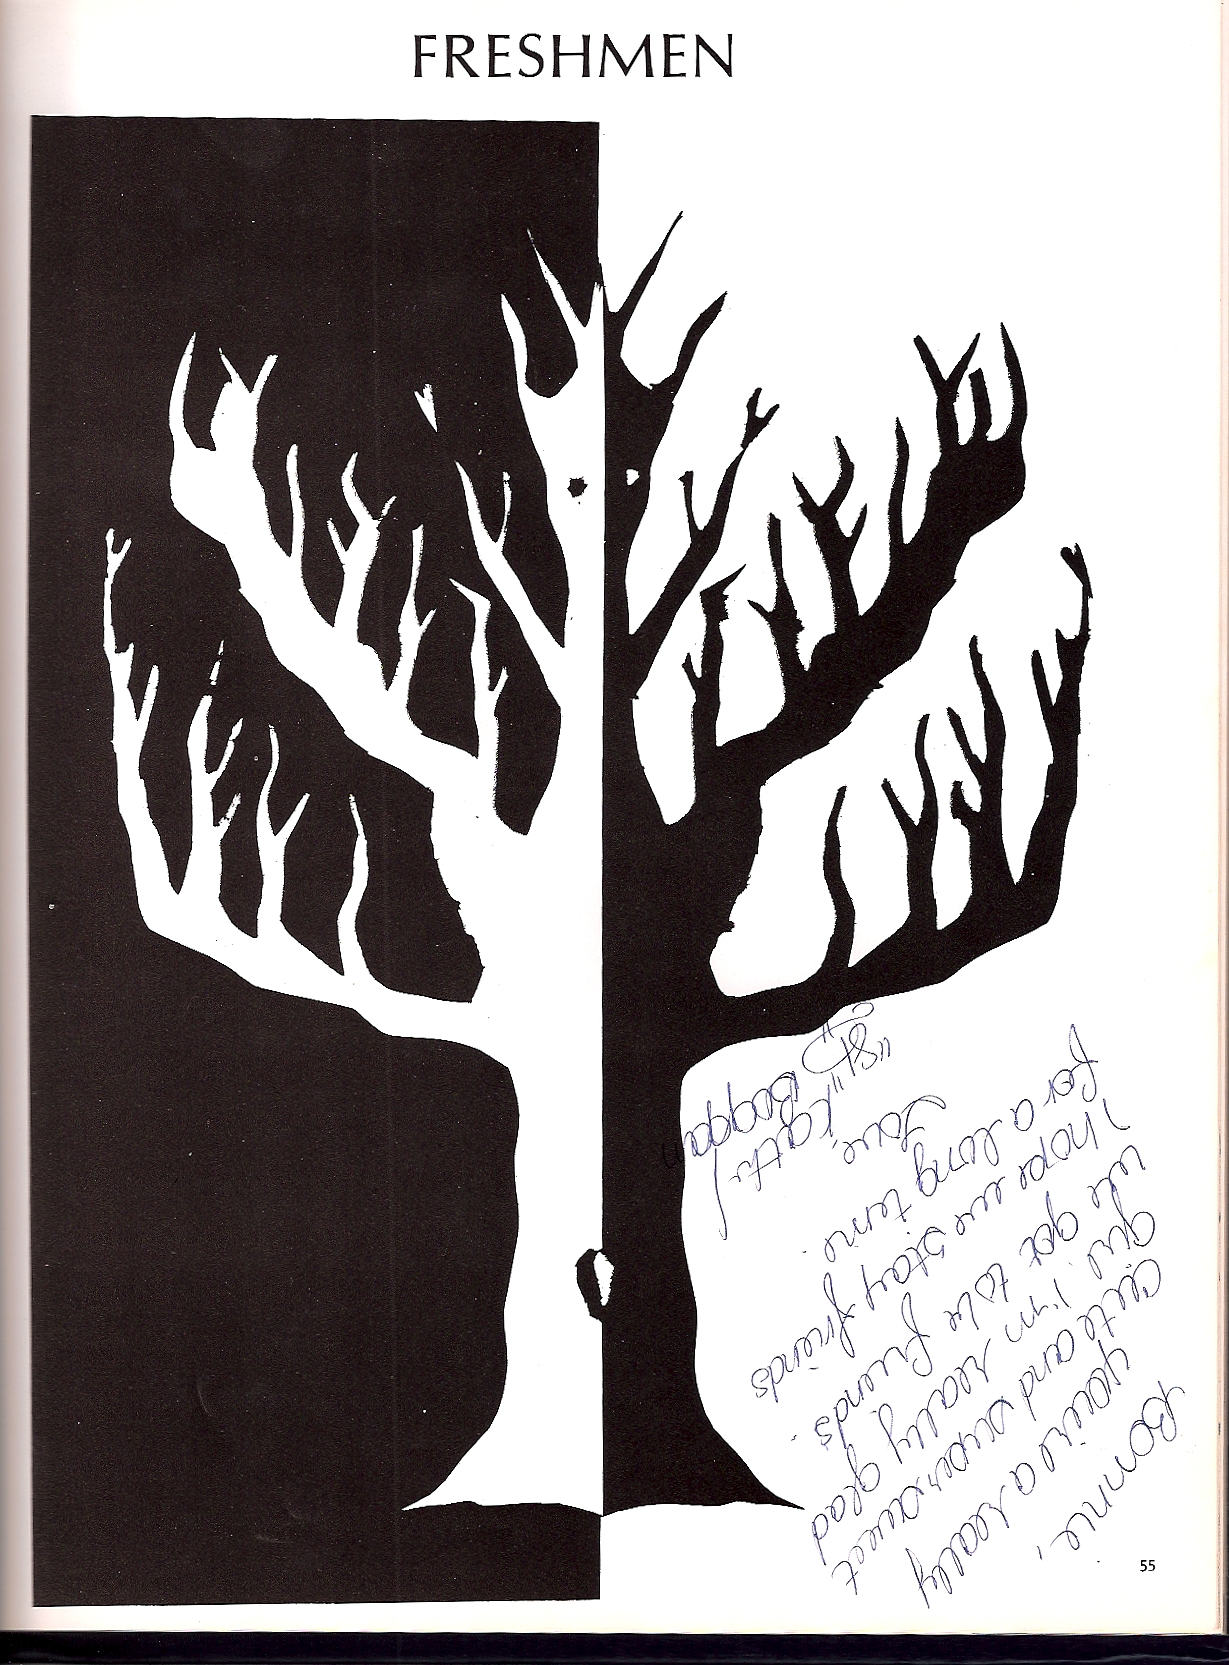 FRESHMEN
Bonnie,
you're a really
cute and super sweet
girl. I'm really glad
we got to be friends.
I hope we stay friends
for a long time.
Love,
Kathi
"St" Bogga
55